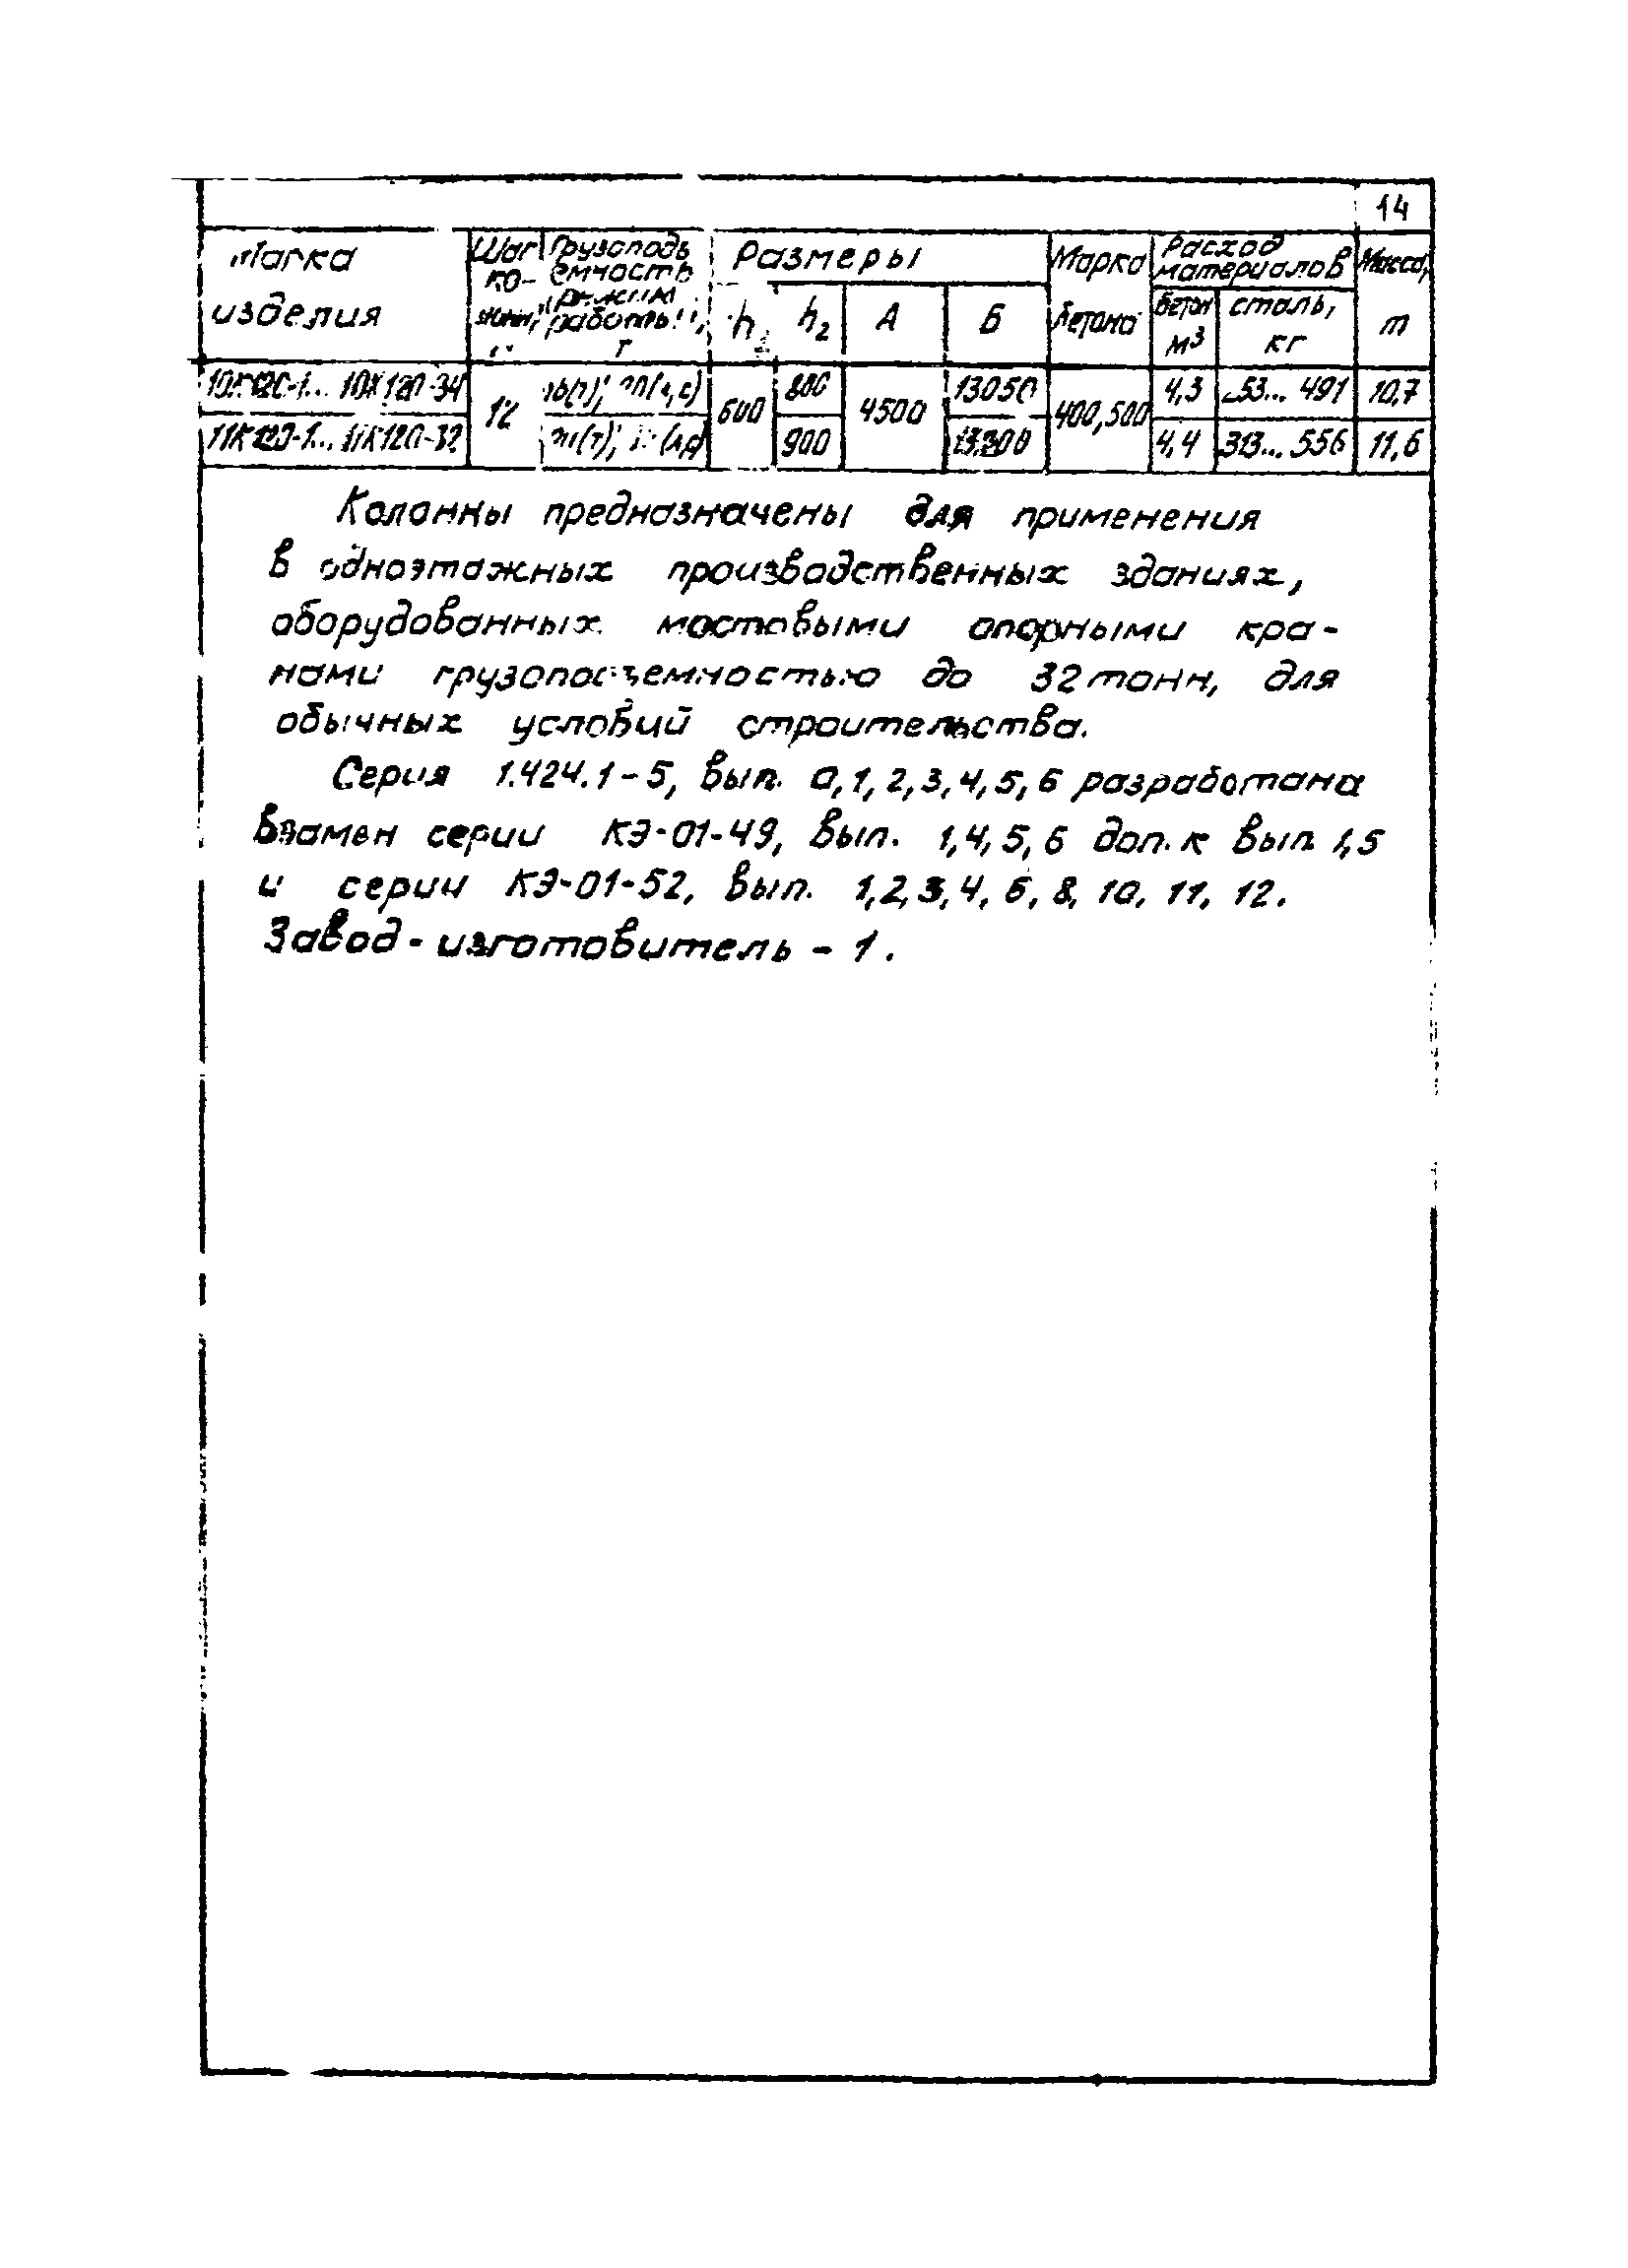 14
Марка изделия
Шаг ко-
Грузоподъ емность режим работы,
Размеры
h h₂ А Б
Марка бетона
Расход материалов
бетон м³ сталь, кг
Масса, т
12 600 800 4500 13050 400,500 4,3 491 10,7
900 13300 4,4 313... 556 11,6
Колонны предназначены для применения
в одноэтажных производственных зданиях,
оборудованных мостовыми опорными кра-
нами грузоподъемностью до 32 тонн, для
обычных условий строительства.
Серия 1.424.1-5, вып. 0,1,2,3,4,5,6 разработана
взамен серии КЭ-01-49, вып. 1,4,5,6 доп. к вып 1,5
и серии КЭ-01-52, вып. 1,2,3,4,6,8,10,11,12.
Завод-изготовитель - 1.